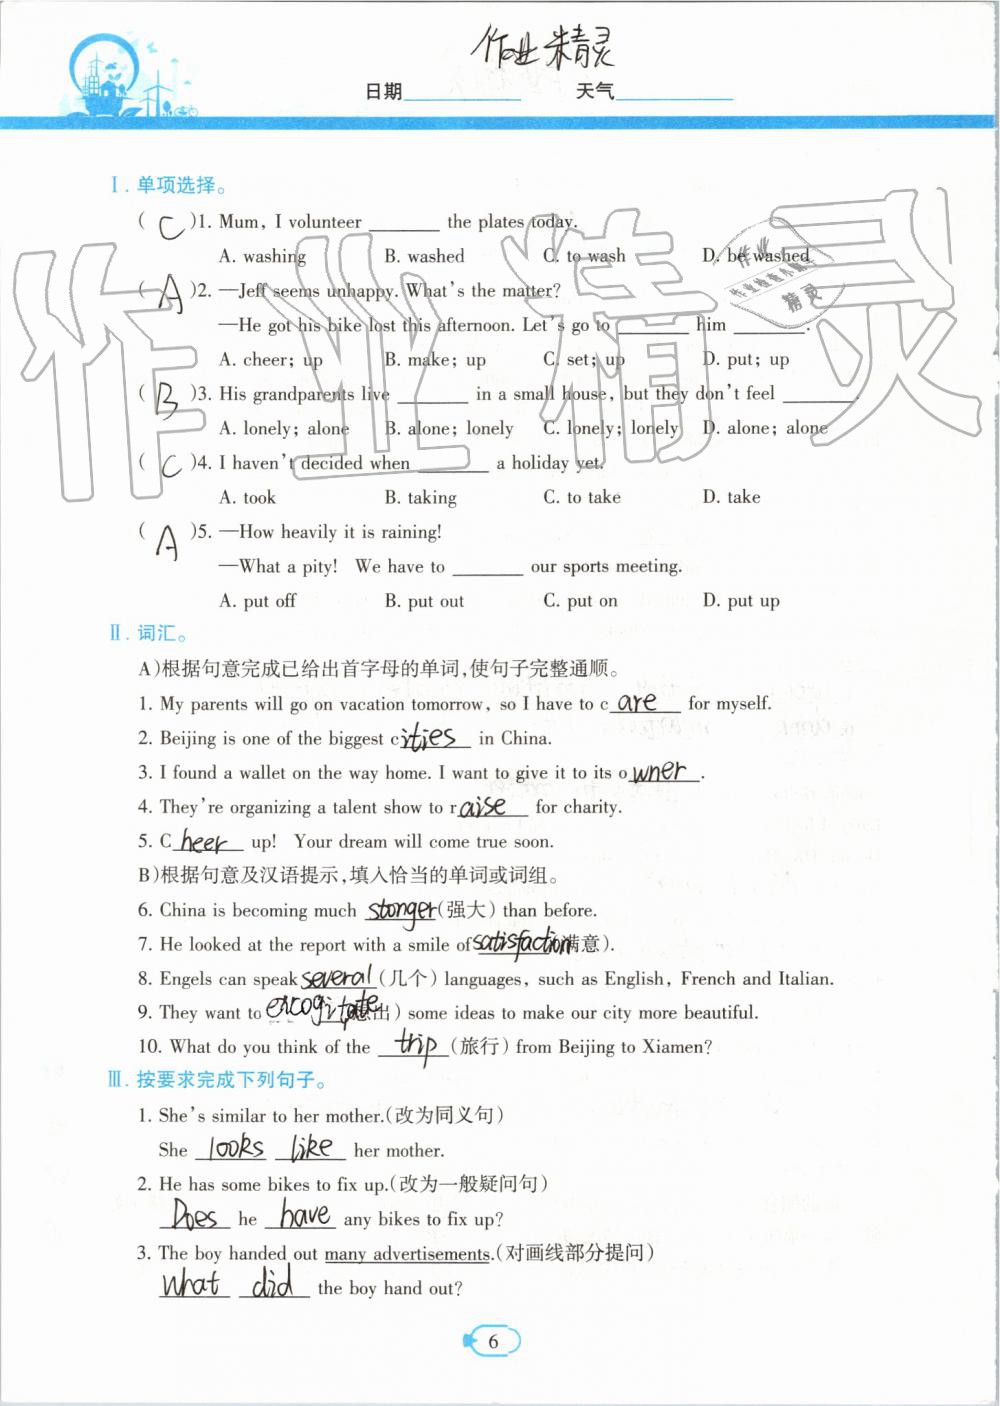 作业精灵
日期 天气
Ⅰ. 单项选择。
( C )1. Mum, I volunteer ________ the plates today.
A. washing B. washed C. to wash D. be washed
( A )2. —Jeff seems unhappy. What's the matter?
—He got his bike lost this afternoon. Let's go to ________ him ________.
A. cheer; up B. make; up C. set; up D. put; up
( B )3. His grandparents live ________ in a small house, but they don't feel ________.
A. lonely; alone B. alone; lonely C. lonely; lonely D. alone; alone
( C )4. I haven't decided when ________ a holiday yet.
A. took B. taking C. to take D. take
( A )5. —How heavily it is raining!
—What a pity! We have to ________ our sports meeting.
A. put off B. put out C. put on D. put up
Ⅱ. 词汇。
A)根据句意完成已给出首字母的单词,使句子完整通顺。
1. My parents will go on vacation tomorrow, so I have to care for myself.
2. Beijing is one of the biggest cities in China.
3. I found a wallet on the way home. I want to give it to its owner.
4. They're organizing a talent show to raise for charity.
5. Cheer up! Your dream will come true soon.
B)根据句意及汉语提示,填入恰当的单词或词组。
6. China is becoming much stonger(强大) than before.
7. He looked at the report with a smile of satisfaction(满意).
8. Engels can speak several(几个) languages, such as English, French and Italian.
9. They want to excogitate(想出) some ideas to make our city more beautiful.
10. What do you think of the trip(旅行) from Beijing to Xiamen?
Ⅲ. 按要求完成下列句子。
1. She's similar to her mother.(改为同义句)
She looks like her mother.
2. He has some bikes to fix up.(改为一般疑问句)
Does he have any bikes to fix up?
3. The boy handed out many advertisements.(对画线部分提问)
What did the boy hand out?
6
作业精灵